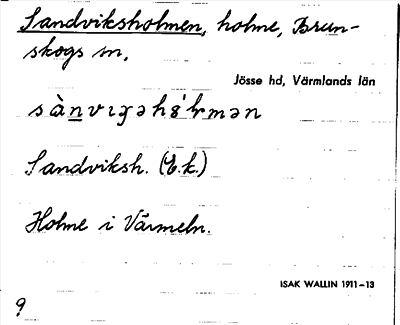 Sandviksholmen, holme, Brun-
skogs sn.
Jösse hd, Värmlands län
Sandviksh. (E.k.)
Holme i Värmeln.
ISAK WALLIN 1911–13
9